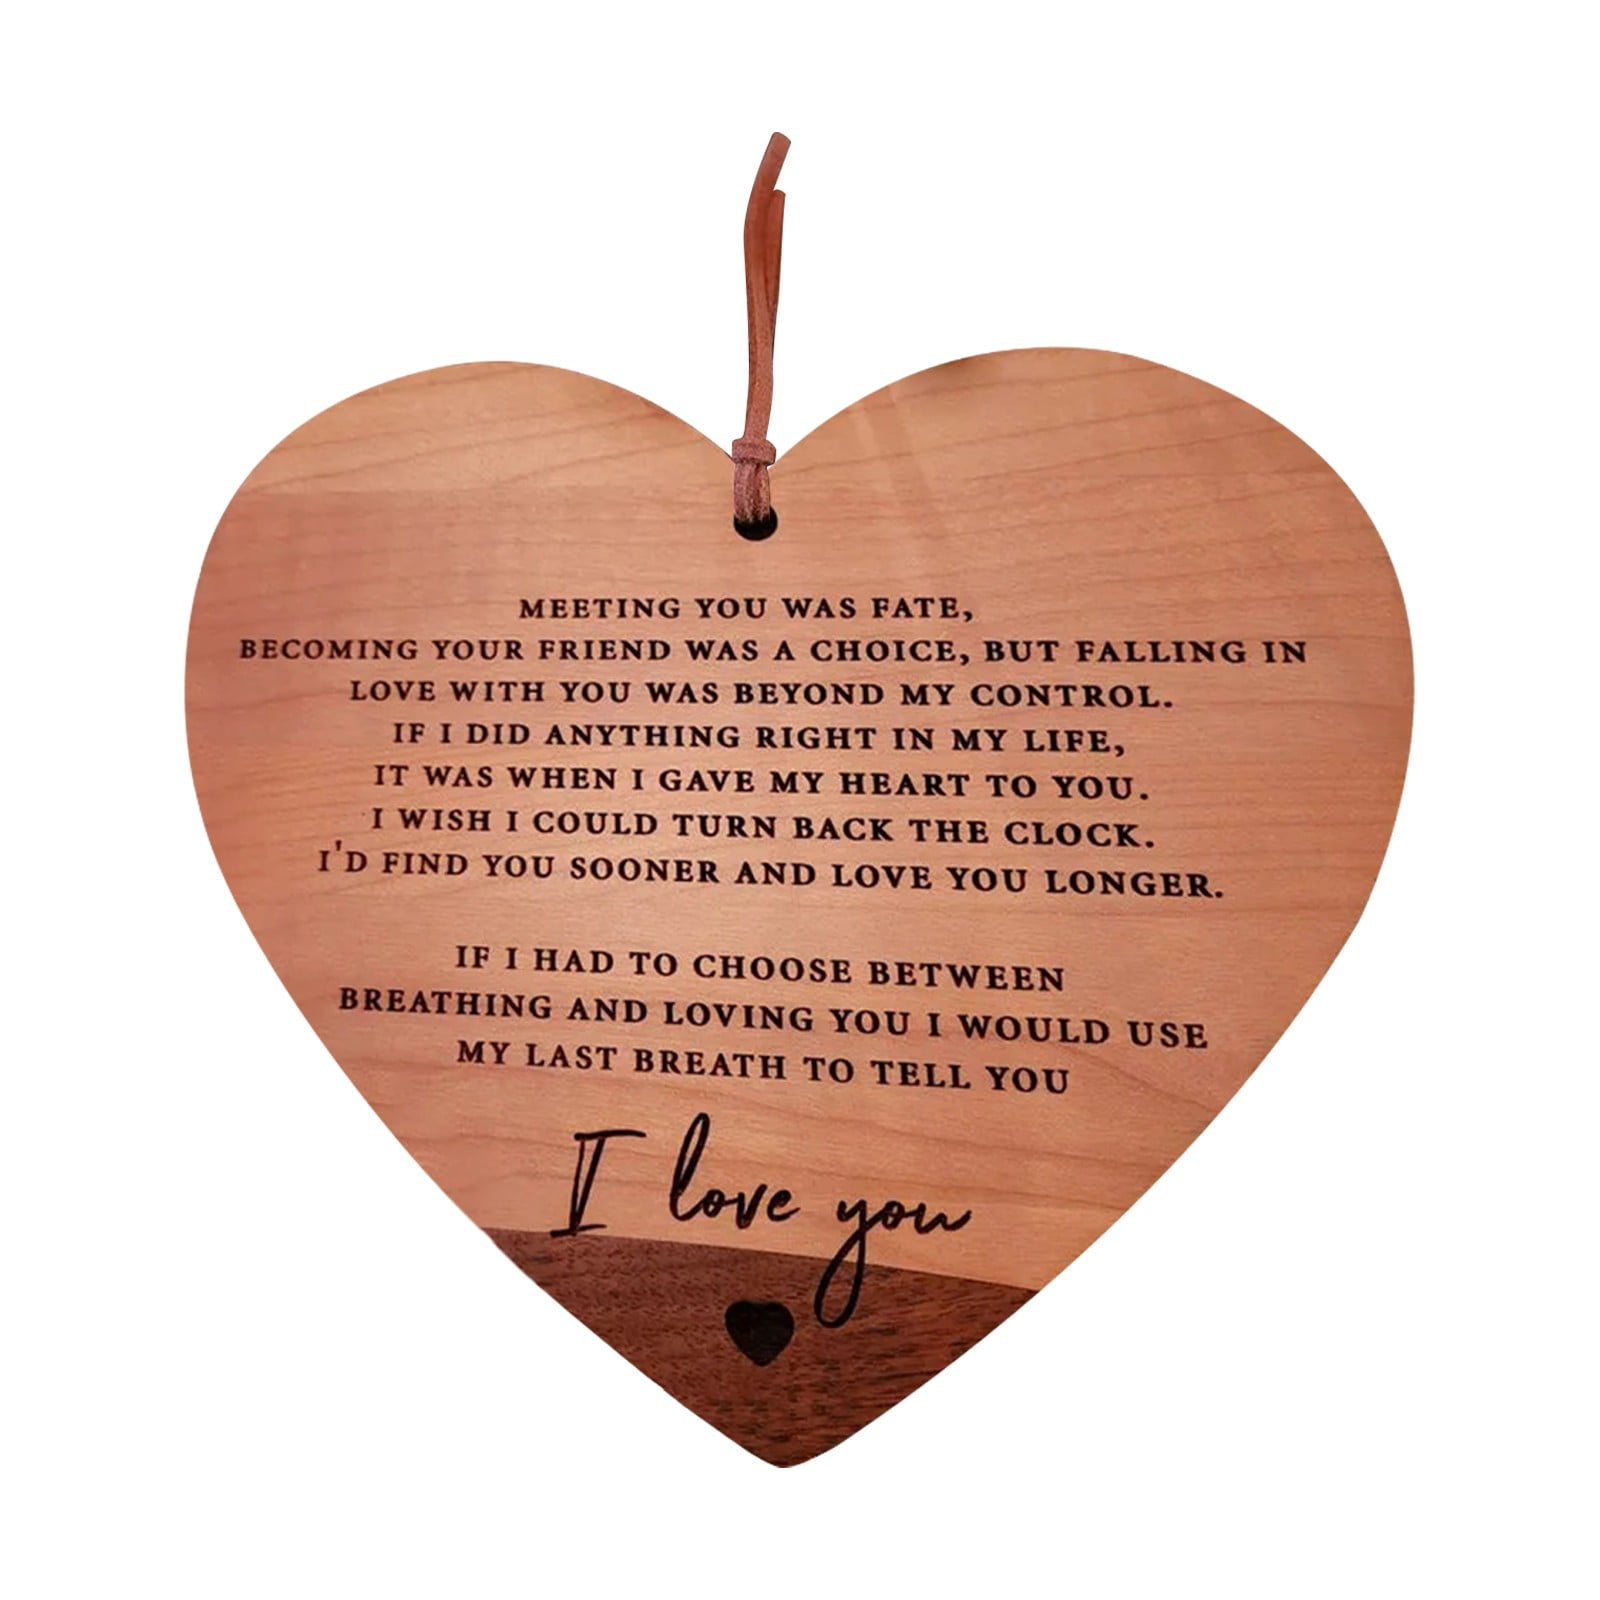 MEETING YOU WAS FATE,
BECOMING YOUR FRIEND WAS A CHOICE, BUT FALLING IN
LOVE WITH YOU WAS BEYOND MY CONTROL.
IF I DID ANYTHING RIGHT IN MY LIFE,
IT WAS WHEN I GAVE MY HEART TO YOU.
I WISH I COULD TURN BACK THE CLOCK.
I'D FIND YOU SOONER AND LOVE YOU LONGER.
IF I HAD TO CHOOSE BETWEEN
BREATHING AND LOVING YOU I WOULD USE
MY LAST BREATH TO TELL YOU
I love you